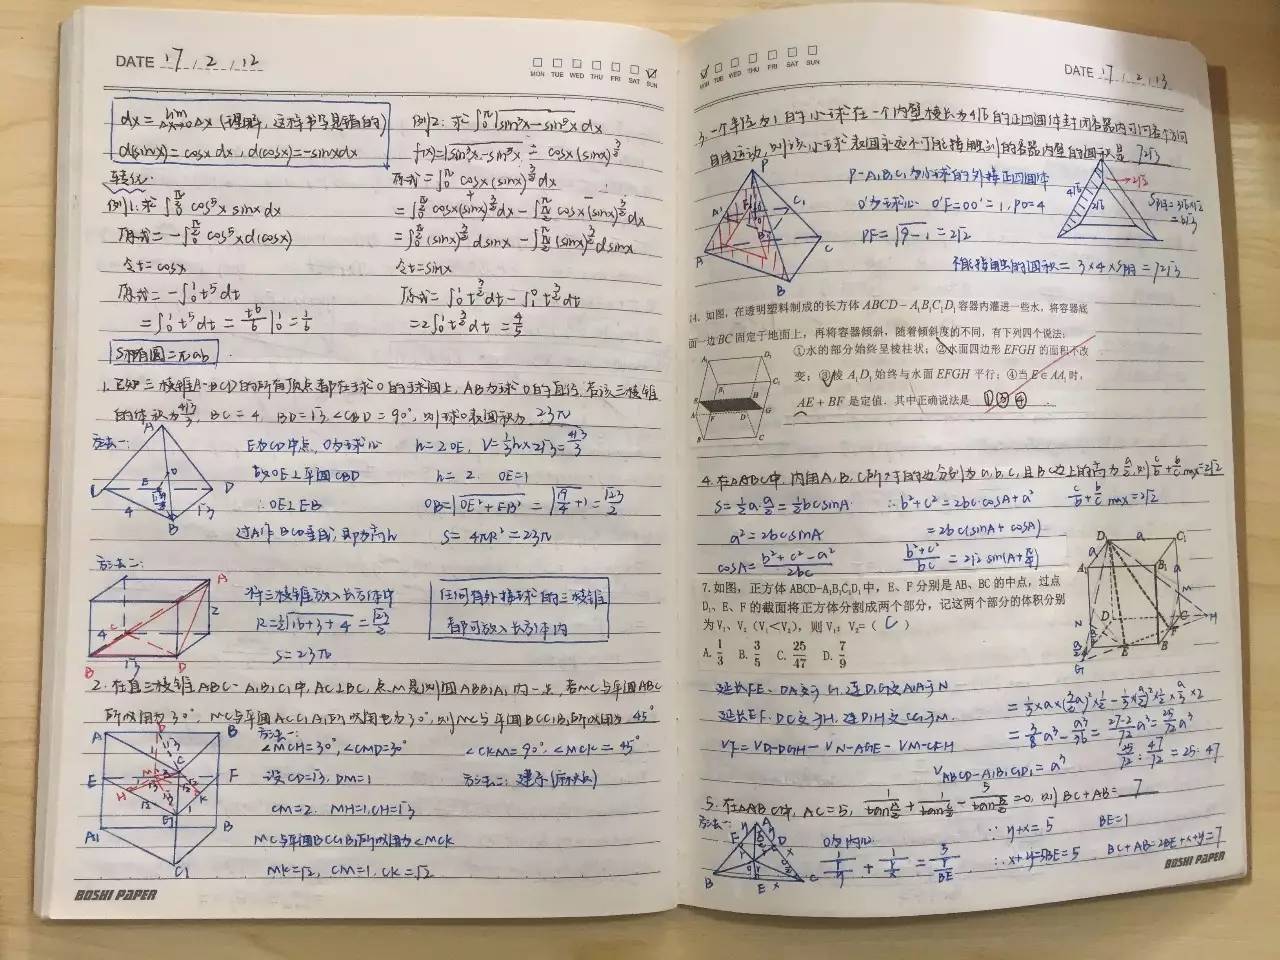 DATE 17.2.12
MON TUE WED THU FRI SAT SUN
dx = lim Δx→0 Δx (理解,这样书写是错的)
d(sinx) = cosx dx, d(cosx) = -sinxdx
例1: 求 ∫ cos⁵x sinx dx
原式 = -∫ cos⁵x d(cosx)
令t=cosx
原式 = -∫ t⁵dt
= ∫₀¹ t⁵dt = t⁶/6 |₀¹ = 1/6
S椭圆 = πab
例2: 求 ∫₀^π √(sin³x-sin⁵x) dx
f(x) = √(sin³x-sin⁵x) = cosx(sinx)^(3/2)
原式 = ∫₀^π cosx(sinx)^(3/2) dx
= ∫₀^(π/2) cosx(sinx)^(3/2) dx - ∫_(π/2)^π cosx(sinx)^(3/2) dx
= ∫₀^(π/2) (sinx)^(3/2) dsinx - ∫_(π/2)^π (sinx)^(3/2) dsinx
令t=sinx
原式 = ∫₀¹ t^(3/2) dt - ∫₁⁰ t^(3/2) dt
= 2∫₀¹ t^(3/2) dt = 4/5
1. 已知三棱锥A-BCD的所有顶点都在球O的球面上, AB为球O的直径, 若该三棱锥
的体积为4√3/3, BC=4, BD=√3, ∠CBD=90°, 则球O表面积为 23π
方法一:
E为CD中点, O为球心
故OE⊥平面CBD
∴OE⊥EB
过A作BCD垂线, 即为高h
h=2OE, V=1/3h×2√3=4√3/3
h=2 OE=1
OB=√(OE²+EB²)=√(19/4+1)=√23/2
S=4πR²=23π
方法二:
将三棱锥放入长方体中
R=1/2√(16+3+4)=√23/2
S=23π
任何有外接球的三棱锥
都可放入长方体内
2. 在直三棱柱ABC-A₁B₁C₁中, AC⊥BC, 点M是侧面ABB₁A₁内一点, 若MC与平面ABC
所成角为30°, MC与平面ACC₁A₁所成角也为30°, 则MC与平面BCC₁B₁所成角为 45°
方法一:
∠MCH=30°, ∠CMD=30°
设CD=√3, DM=1
CM=2. MH=1, CH=√3
MC与平面BCC₁B₁所成角为∠MCK
MK=√2, CM=1, CK=√2
∠CKM=90°, ∠MCK=45°
方法二: 建系
BOSHI PAPER
MON TUE WED THU FRI SAT SUN
DATE 17.2.13
3. 一个半径为1的小球在一个内壁棱长为4√6的正四面体封闭容器内可向各个方向
自由运动, 则该小球表面永远不可能接触到的容器内壁的面积是 72√3
P-A₁B₁C₁为小球的外接正四面体
O'为球心 O'F=OO'=1, PO=4
PF=√(9-1)=2√2
4√6 2√6 2√3
不能接触的面积=3×4×S阴=72√3
14. 如图,在透明塑料制成的长方体 ABCD-A₁B₁C₁D₁ 容器内灌进一些水,将容器底
面一边BC固定于地面上,再将容器倾斜,随着倾斜度的不同,有下列四个说法:
①水的部分始终呈棱柱状;②水面四边形 EFGH 的面积不改
变;③棱 A₁D₁ 始终与水面 EFGH 平行;④当 E∈AA₁ 时,
AE+BF 是定值. 其中正确说法是 ①③④
4. 在△ABC中, 内角A, B, C所对的边分别为a, b, c, 且BC边上的高为a/2, 则 c/b+b/c max=2√2
S=1/2a·a/2=1/2bcsinA
a²=2bcsinA
cosA=(b²+c²-a²)/2bc
∴b²+c²=2bccosA+a²
=2bc(sinA+cosA)
(b²+c²)/bc=2√2sin(A+π/4)
c/b+b/c max=2√2
7. 如图,正方体 ABCD-A₁B₁C₁D₁ 中,E、F 分别是 AB、BC 的中点,过点
D₁、E、F 的截面将正方体分割成两个部分,记这两个部分的体积分别
为 V₁、V₂(V₁<V₂),则 V₁:V₂=( C )
A. 1/3 B. 3/5 C. 25/47 D. 7/9
延长FE、DA交于G, 连D₁G交A₁A于N
延长EF、DC交于H, 连D₁H交CC₁于M
V下=V_D₁-DGH-V_N-AGE-V_M-CFH
=1/3×a×(3/2a)²×1/2-1/3×(a/2)²×1/2×a/3×2
=3/8a³-a³/36=(27-2)/72a³=25/72a³
V_ABCD-A₁B₁C₁D₁=a³
25/72:47/72=25:47
5. 在△ABC中, AC=5, 1/tan(A/2)+1/tan(C/2)-5/tan(B/2)=0, 则BC+AB= 7
方法一:
O为内心
1/(r/y)+1/(r/x)=5/(r/BE)
∵y+x=5
BE=1
∴x+y=5BE=5
BC+AB=2BE+x+y=7
BOSHI PAPER